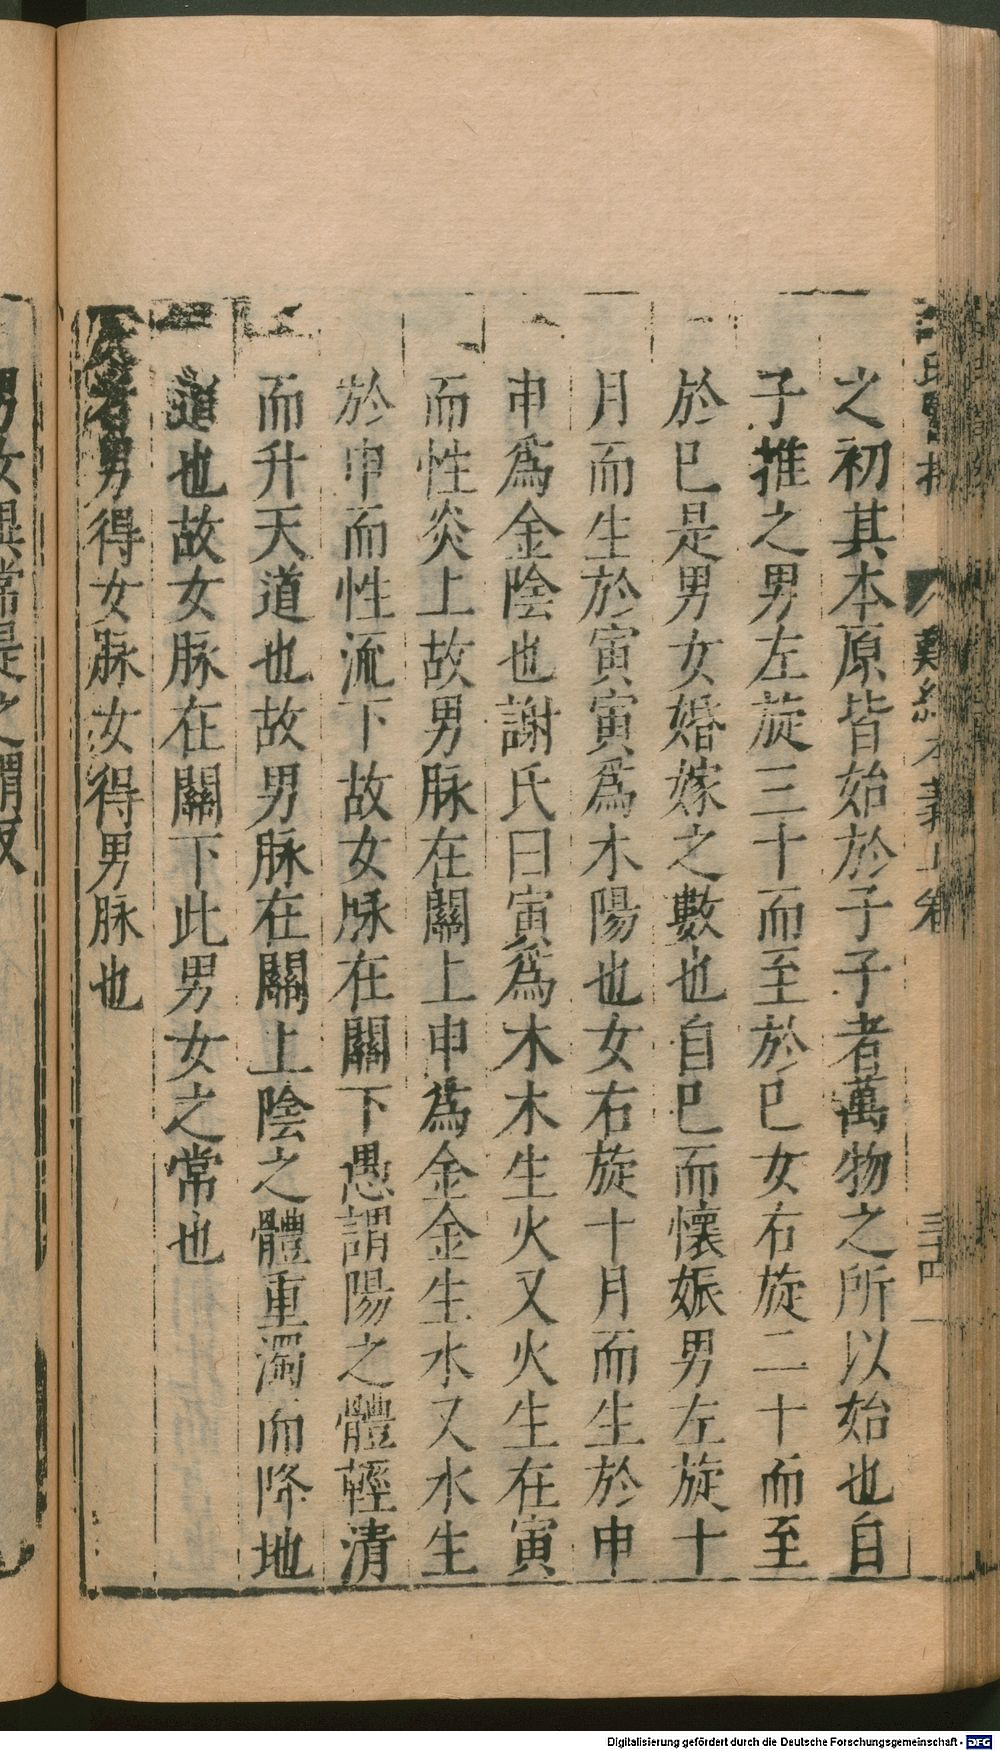 之初其本原皆始於子子者萬物之所以始也自
子推之男左旋三十而至於巳女右旋二十而至
於巳是男女婚嫁之數也自巳而懷娠男左旋十
月而生於寅寅爲木陽也女右旋十月而生於申
申爲金陰也謝氏曰寅爲木木生火又火生在寅
而性炎上故男脉在關上申爲金金生水又水生
於申而性流下故女脉在關下愚謂陽之體輕清
而升天道也故男脉在關上陰之體重濁而降地
道也故女脉在關下此男女之常也
者男得女脉女得男脉也
難經本義上卷
三四
男女異常是之謂反
Digitalisierung gefördert durch die Deutsche Forschungsgemeinschaft - DFG